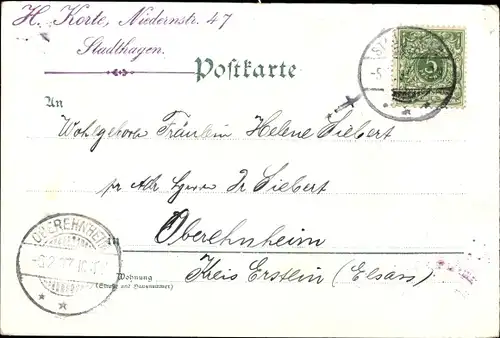 H. Korte, Niedernstr. 47
Stadthagen.
Postkarte
An
Wohlgeborn Fräulein Helene Siebert
pr Adr Herrn Dr Siebert
Oberehnheim
Wohnung
(Straße und Hausnummer)
Kreis Erstein (Elsass)
OBEREHNHEIM
5